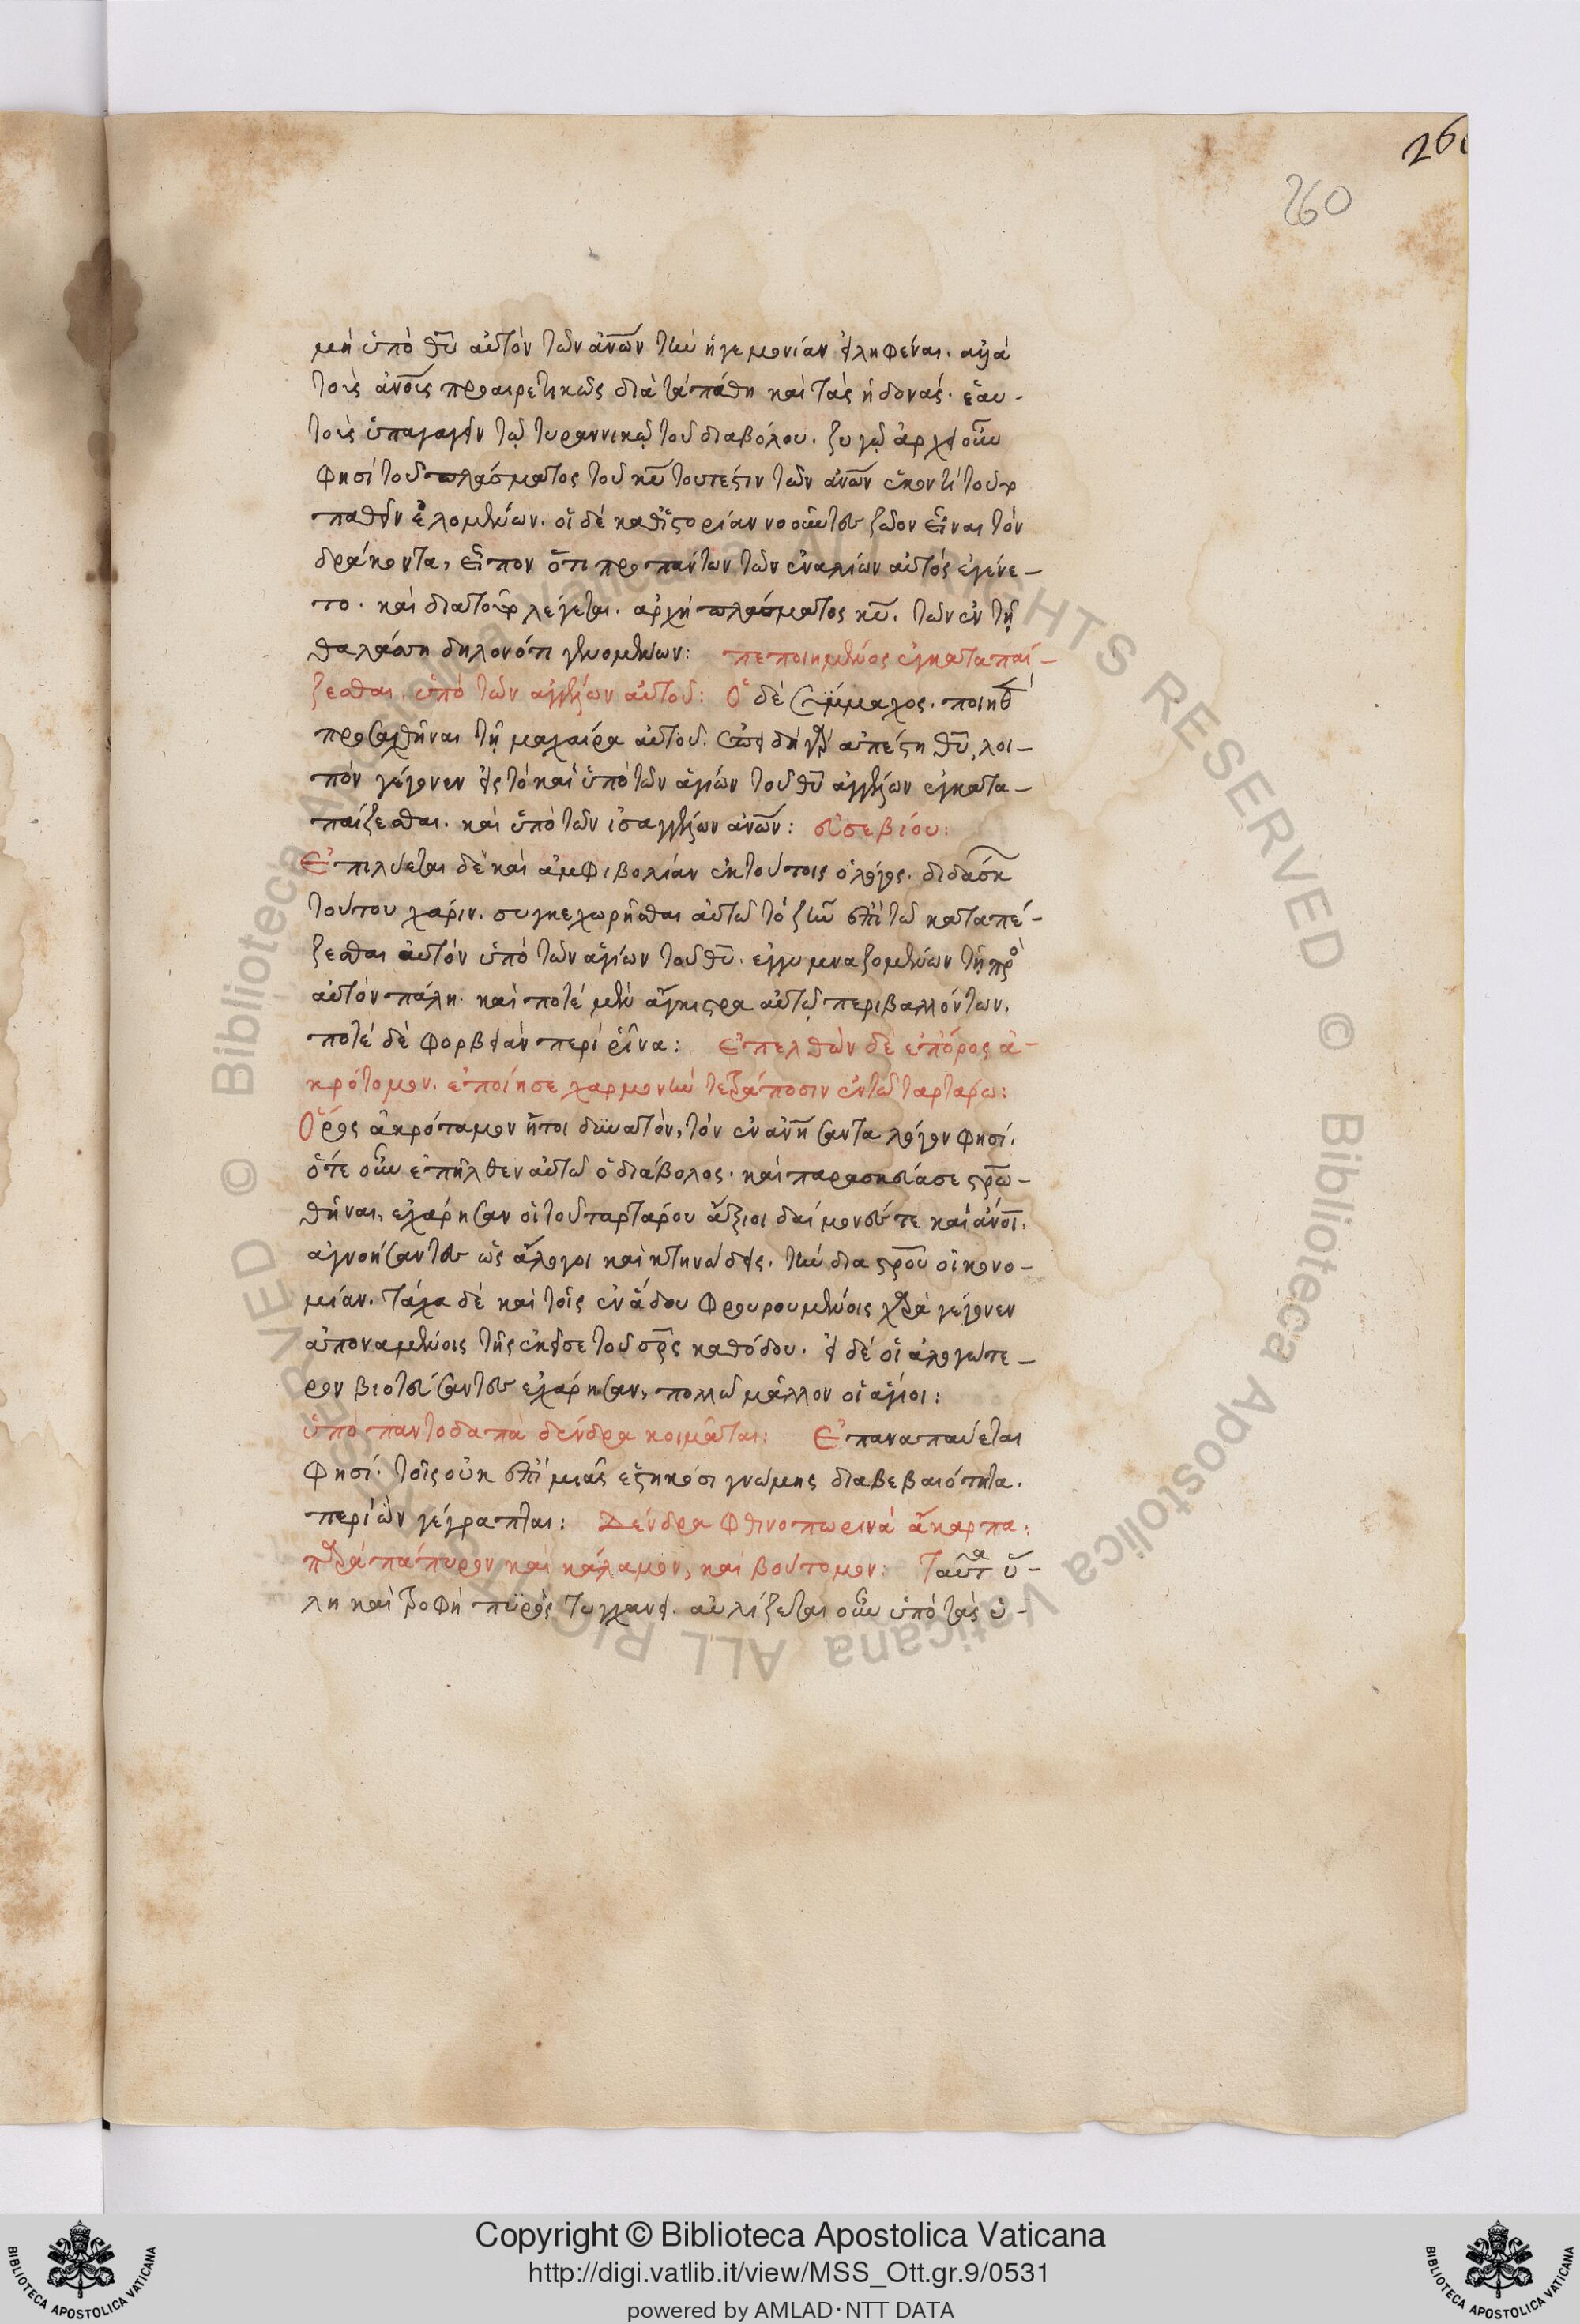 261
260
μὴ ὑπὸ θῦ αὐτὸν τῶν ἀνῶν τὴν ἡγεμονίαν εἰληφέναι. ἀλλὰ
τοὺς ἀνοῖς προαιρετικῶς διὰ τὰ πάθη καὶ τὰς ἡδονάς. ἑαυ-
τοὺς ὑπαγαγεῖν τῷ τυραννικῷ τοῦ διαβόλου. ζυγῷ ἄρχει οὖν
φησὶ τοῦ πλάσματος τοῦ κῦ τουτέστιν τῶν ἀνῶν ἑκοντὶ τοῦτο
παθεῖν ἑλομένων. οἱ δὲ καθ' ἱστορίαν νοοῦντες ζῶον εἶναι τὸν
δράκοντα, εἶπον ὅτι πρὸ πάντων τῶν ἐναλίων αὐτὸς ἐγένε-
το. καὶ διατοῦτο λέγεται. ἀρχὴ πλάσματος κῦ. τῶν ἐν τῇ
θαλάσση δηλονότι γενομένων: πεποιημένος ἐγκαταπαί-
ζεσθαι ὑπὸ τῶν ἀγγέλων αὐτοῦ: Ὁ δὲ Σύμμαχος.
προσαχθῆναι τῇ μαχαίρα αὐτοῦ. ἐπειδὴ γὰρ ἀπέστη θῦ, λοι-
πὸν γέγονεν εἰς τὸ καὶ ὑπὸ τῶν ἁγίων τοῦ θῦ ἀγγέλων ἐγκατα-
παίζεσθαι. καὶ ὑπὸ τῶν ἰσαγγέλων ἀνῶν: εὐσεβίου:
Ἐπιλύεται δὲ καὶ ἀμφιβολίαν ἐκ τούτοις ὁ λόγος. διδάσκει
τούτου χάριν. συγκεχωρῆσθαι αὐτῶ τὸ ζῆν ἐπὶ τῶ καταπέ-
ζεσθαι αὐτὸν ὑπὸ τῶν ἁγίων τοῦ θῦ. ἐγγυμναζομένων τῇ πρὸ
αὐτὸν πάλη. καὶ ποτὲ μὲν ἄγκιστρα αὐτῷ περιβαλλόντων.
ποτὲ δὲ φορβειὰν περὶ ῥῖνα: Ἐπελθὼν δὲ ἐπ' ὄρος ἀ-
κρότομον. ἐποίησε χαρμονὴν τετράποσιν ἐν τῶ ταρτάρω:
Ὄρος ἀκρότομον ἤτοι δυνατὸν, τὸν ἐνανθήσαντα λόγον φησί.
ὅτε οὖν ἐπῆλθεν αὐτῶ ὁ διάβολος. καὶ παρασκευάσε στρω-
θῆναι, ἐχάρησαν οἱ τοῦ ταρτάρου ἄξιοι δαίμονές τε καὶ ἀνοι.
ἀγνοήσαντες ὡς ἄλογοι καὶ κτηνώδεις. τὴν δια στροῦ οἰκονο-
μίαν. τάχα δὲ καὶ τοῖς ἐν ἅδου φρουρουμένοις χαρὰ γέγονεν
ἀποναμένοις τῆς ἐκεῖσε τοῦ σρς καθόδου. εἰ δὲ οἱ ἀλογώτε-
ρον βιοτεύσαντες ἐχάρησαν, πολλῶ μᾶλλον οἱ ἅγιοι:
ὑπὸ παντοδαπὰ δένδρα κοιμᾶται: Ἐπαναπαύεται
φησί. τοῖς οὐκ ἐπὶ μιᾶς ἑστηκόσι γνώμης διαβεβαιότητα.
περὶ ὧν γέγραπται: Δένδρα φθινοπωρινὰ ἄκαρπα:
παρὰ πάπυρον καὶ κάλαμον, καὶ βούτομον: Ταῦτα ὕ-
λη καὶ τροφὴ πυρὸς τυγχάνει. αὐλίζεται οὖν ὑπὸ τὰς ὑ-
© Biblioteca Apostolica Vaticana ALL RIGHTS RESERVED © Biblioteca Apostolica Vaticana ALL RIGHTS RESERVED
Copyright © Biblioteca Apostolica Vaticana
http://digi.vatlib.it/view/MSS_Ott.gr.9/0531
powered by AMLAD·NTT DATA
BIBLIOTECA APOSTOLICA VATICANA
BIBLIOTECA APOSTOLICA VATICANA